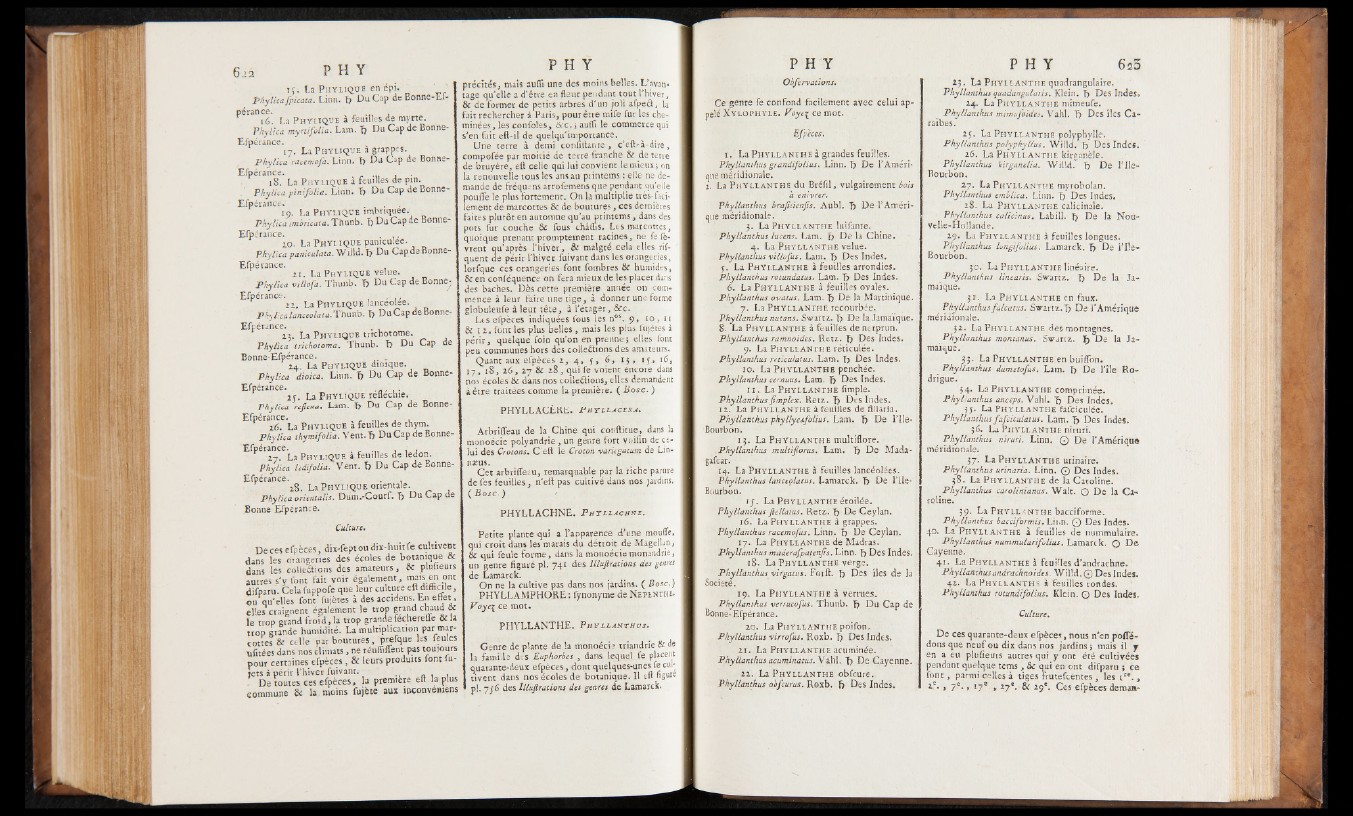 622 P H Y
15. La PHYLIQUE en épi.
Phylica spicata. Linn. ♄ Du Cap de Bonne-Es-
pérance.
16. La PHYLIQUE à feuilles de myrte.
Phylica myrtifolia. Lam. ♄ Du Cap de Bonne-
Espérance.
17. La PHYLIQUE à grappes.
Phylica racemosa. Linn. ♄ Du Cap de Bonne-
Espérance.
18. La PHYLIQUE à feuilles de pin.
Phylica pinifolia. Linn. ♄ Du Cap de Bonne-
Espérance.
19. La PHYLIQUE imbriquée.
Phylica imbricata. Thunb. ♄ Du Cap de Bonne-
Espérance.
20. La PHYLIQUE paniculée.
Phylica paniculata. Willd. ♄ Du Cap de Bonne-
Espérance.
21. La PHYLIQUE velue.
Phylica villosa. Thunb. ♄ Du Cap de Bonne-
Espérance.
22. La PHYLIQUE lancéolée.
Phylica lanceolata. Thunb. ♄ Du Cap de Bonne-
Espérance.
23. La PHYLIQUE trichotome.
Phylica trichotoma. Thunb. ♄ Du Cap de
Bonne-Espérance.
24. La PHYLIQUE dioïque.
Phylica dioica. Linn. ♄ Du Cap de Bonne-
Espérance.
25. La PHYLIQUE réfléchie.
Phylica reflexa. Lam. ♄ Du Cap de Bonne-
Espérance.
26. La PHYLIQUE à feuilles de thym.
Phylica thymifolia. Vent. ♄ Du Cap de Bonne-
Espérance.
27. La PHYLIQUE à feuilles de ledon.
Phylica ledifolia. Vent. ♄ Du Cap de Bonne-
Espérance.
28. La PHYLIQUE orientale.
Phylica orientalis. Dum.-Courf. ♄ Du Cap de
Bonne-Espérance.
Culture.
De ces espèces, dix-sept ou dix-huit se cultivent
dans les orangeries des écoles de botanique &
dans les collections des amateurs, & plusieurs
autres s'y sont fait voir également, mais en ont
disparu. Cela suppose que leur culture est difficile,
ou qu'elles sont sujètes à des accidens. En effet,
elles craignent également le trop grand chaud &
le trop grand froid, la trop grande sécheresse & la
trop grande humidité. La multiplication par mar-
cottes & celle par boutures, presque les seules
usitées dans nos climats, ne réussissent pas toujours
pour certaines espèces, & leurs produits sont su-
jets à périr l'hiver suivant.
De toutes ces espèces, la première est la plus
commune & la moins sujète aux inconvéniens
P H Y
précités, mais aussi une des moins belles. L'avan-
tage qu'elle a d'être en fleur pendant tout l'hiver,
& de former de petits arbres d'un joli aspect, la
fait rechercher à Paris, pour être mise sur les che-
minées, les consoles, &c.; aussi le commerce qui
s'en fait est-il de quelqu'importance.
Une terre à demi consistante, c'est-à-dire,
composée par moitié de terre franche & de terre
de bruyère, est celle qui lui convient le mieux; on
la renouvelle tous les ans au printems: elle ne de-
mande de fréquens arrosemens que pendant qu'elle
pousse le plus fortement. On la multiplie très-faci-
lement de marcottes & de boutures, ces dernières
faites plutôt en automne qu'au printems, dans des
pots sur couche & sous châssis. Les marcottes,
quoique prenant promptement racines, ne se sè-
vrent qu'après l'hiver, & malgré cela elles ris-
quent de périr l'hiver suivant dans les orangeries,
lorsque ces orangeries sont sombres & humides,
& en conséquence on fera mieux de les placer dans
des baches. Dès cette première année on com-
mence à leur faire une tige, à donner une forme
globuleuse à leur tête, à l'étager, &c.
Les espèces indiquées sous les nos. 9, 10, 11
& 12, sont les plus belles, mais les plus sujètes à
périr, quelque soin qu'on en prenne; elles sont
peu communes hors des collections des amateurs.
Quant aux espèces 2, 4, 5, 6, 13, 15, 16,
17, 18, 26, 27 & 28, qui se voient encore dans
nos écoles & dans nos collections, elles demandent
à être traitées comme la première. (Bosc.)
PHYLLACÈRE. PHYLLACERA.
Arbrisseau de la Chine qui constitue, dans la
monoécie polyandrie, un genre fort voisin de ce-
lui des Crotons. C'est le Croton variegatum de Lin-
næus.
Cet arbrisseau, remarquable par la riche parure
de ses feuilles, n'est pas cultivé dans nos jardins.
(Bosc.)
PHYLLACHNE. PHYLLACHNE.
Petite plante qui a l'apparence d'une mousse,
qui croît dans les marais du détroit de Magellan,
& qui seule forme, dans la monoécie monandrie,
un genre figuré pl. 741 des Illustrations des genres
de Lamarck.
On ne la cultive pas dans nos jardins. (Bosc.)
PHYLLAMPHORE: synonyme de NEPENTHE.
Voyez ce mot.
PHYLLANTHE. PHYLLANTHUS.
Genre de plante de la monoécie triandrie & de
la famille des Euphorbes, dans lequel se placent
quarante-deux espèces, dont quelques-unes se cul-
tivent dans nos écoles de botanique. Il est figuré
pl. 756 des Illustrations des genres de Lamarck.
P H Y
Observations.
Ce genre se confond facilement avec celui ap-
pelé XYLOPHYLE. Voyez ce mot.
Espèces.
1. La PHYLLANTHE à grandes feuilles.
Phyllanthus grandifolius. Linn. ♄ De l'Améri-
que méridionale.
2. La PHYLLANTHE du Brésil, vulgairement bois
à enivrer.
Phyllanthus brasiliensis. Aubl. ♄ De l'Améri-
que méridionale.
3. La PHYLLANTHE luisante.
Phyllanthus lucens. Lam. ♄ De la Chine.
4. La PHYLLANTHE velue.
Phyllanthus villosus. Lam. ♄ Des Indes.
5. La PHYLLANTHE à feuilles arrondies.
Phyllanthus rotundatus. Lam. ♄ Des Indes.
6. La PHYLLANTHE à feuilles ovales.
Phyllanthus ovatus. Lam. ♄ De la Martinique.
7. La PHYLLANTHE recourbée.
Phyllanthus nutans. Swartz. ♄ De la Jamaïque.
8. La PHYLLANTHE à feuilles de nerprun.
Phyllanthus ramnoides. Retz. ♄ Des Indes.
9. La PHYLLANTHE réticulée.
Phyllanthus reticulatus. Lam. ♄ Des Indes.
10. La PHYLLANTHE penchée.
Phyllanthus cernuus. Lam. ♄ Des Indes.
11. La PHYLLANTHE simple.
Phyllanthus simplex. Retz. ♄ Des Indes.
12. La PHYLLANTHE à feuilles de fillaria.
Phyllanthus phyllyreafolius. Lam. ♄ De l'Ile-
Bourbon.
13. La PHYLLANTHE multiflore.
Phyllanthus multiflorus. Lam. ♄ De Mada-
gascar.
14. La PHYLLANTHE à feuilles lancéolées.
Phyllanthus lanceolatus. Lamarck. ♄ De l'Ile-
Bourbon.
15. La PHYLLANTHE étoilée.
Phyllanthus stellatus. Retz. ♄ De Ceylan.
16. La PHYLLANTHE à grappes.
Phyllanthus racemosus. Linn. ♄ De Ceylan.
17. La PHYLLANTHE de Madras.
Phyllanthus maderaspatensis. Linn. ♄ Des Indes.
18. La PHYLLANTHE verge.
Phyllanthus virgatus. Forst. ♄ Des îles de la
Société.
19. La PHYLLANTHE à verrues.
Phyllanthus verrucosus. Thunb. ♄ Du Cap de
Bonne-Espérance.
20. La PHYLLANTHE poison.
Phyllanthus virrosus. Roxb. ♄ Des Indes.
21. La PHYLLANTHE acuminée.
Phyllanthus acuminatus. Vahl. ♄ De Cayenne.
22. La PHYLLANTHE obscure.
Phyllanthus obscurus. Roxb. ♄ Des Indes.
P H Y 623
23. La PHYLLANTHE quadrangulaire.
Phyllanthus quadrangularis. Klein. ♄ Des Indes.
24. La PHYLLANTHE mimeuse.
Phyllanthus mimosoides. Vahl. ♄ Des îles Ca-
raïbes.
25. La PHYLLANTHE polyphylle.
Phyllanthus polyphyllus. Willd. ♄ Des Indes.
26. La PHYLLANTHE kirganèle.
Phyllanthus kirganelia. Willd. ♄ De l'Ile-
Bourbon.
27. La PHYLLANTHE myrobolan.
Phyllanthus emblica. Linn. ♄ Des Indes.
28. La PHYLLANTHE calicinale.
Phyllanthus calicinus. Labill. ♄ De la Nou-
velle-Hollande.
29. La PHYLLANTHE à feuilles longues.
Phyllanthus longifolius. Lamarck. ♄ De l'Ile-
Bourbon.
30. La PHYLLANTHE linéaire.
Phyllanthus linearis. Swartz. ♄ De la Ja-
maïque.
31. La PHYLLANTHE en faux.
Phyllanthus falcatus. Swartz. ♄ De l'Amérique
méridionale.
32. La PHYLLANTHE des montagnes.
Phyllanthus montanus. Swartz. ♄ De la Ja-
maïque.
33. La PHYLLANTHE en buisson.
Phyllanthus dumetosus. Lam. ♄ De l'île Ro-
drigue.
34. La PHYLLANTHE comprimée.
Phyllanthus anceps. Vahl. ♄ Des Indes.
35. La PHYLLANTHE fasciculée.
Phyllanthus fasciculatus. Lam. ♄ Des Indes.
36. La PHYLLANTHE niruri.
Phyllanthus niruri. Linn. ☉ De l'Amérique
méridionale.
37. La PHYLLANTHE urinaire.
Phyllanthus urinaria. Linn. ☉ Des Indes.
38. La PHYLLANTHE de la Caroline.
Phyllanthus carolinianus. Walt. ☉ De la Ca-
roline.
39. La PHYLLANTHE bacciforme.
Phyllanthus bacciformis. Linn. ☉ Des Indes.
40. La PHYLLANTHE à feuilles de nummulaire.
Phyllanthus nummularifolius. Lamarck. ☉ De
Cayenne.
41. La PHYLLANTHE à feuilles d'andrachne.
Phyllanthus andrachnoides. Willd. ☉ Des Indes.
42. La PHYLLANTHE à feuilles rondes.
Phyllanthus rotundifolius. Klein. ☉ Des Indes.
Culture.
De ces quarante-deux espèces, nous n'en possé-
dons que neuf ou dix dans nos jardins; mais il y
en a eu plusieurs autres qui y ont été cultivées
pendant quelque tems, & qui en ont disparu; ce
sont, parmi celles à tiges frutescentes, les 1re.,
2e., 7e., 17e, 27e. & 29e. Ces espèces deman-